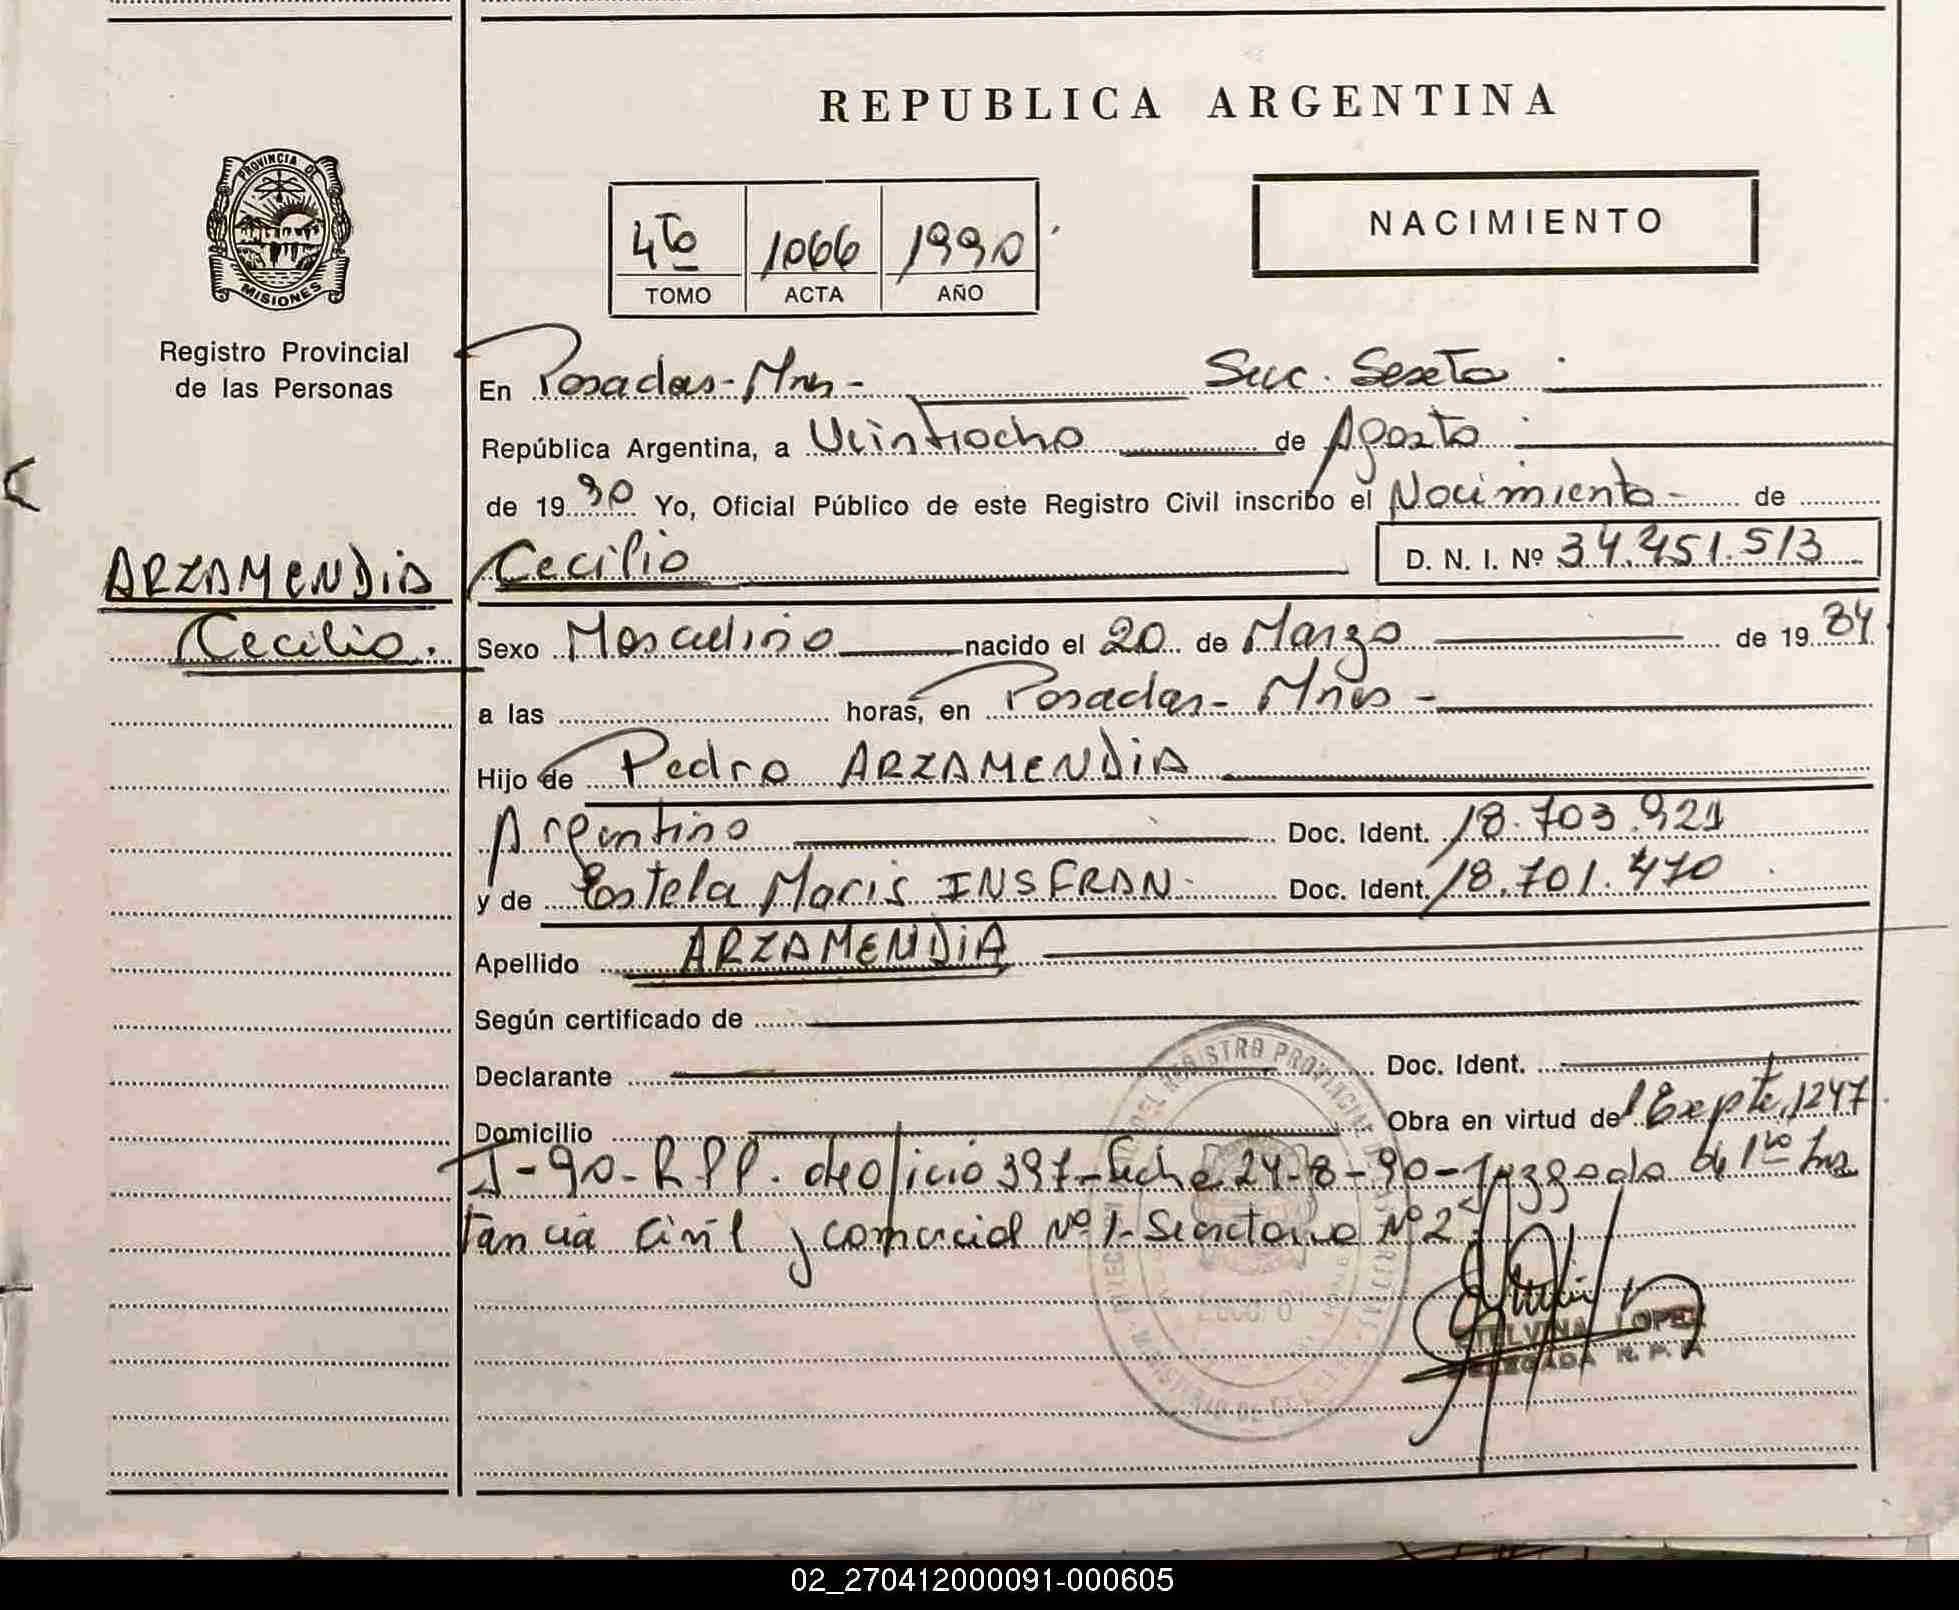 REPUBLICA ARGENTINA
PROVINCIA DE
MISIONES
Registro Provincial
de las Personas
4to 1066 1990
TOMO ACTA AÑO
NACIMIENTO
En Posadas-Mns- Suc. Sexta
República Argentina, a Veintiocho de Agosto
de 19 90 Yo, Oficial Público de este Registro Civil inscribo el Nacimiento- de
ARZAMENDIA
Cecilio.
Cecilio D. N. I. Nº 34.451.513
Sexo Masculino nacido el 20 de Marzo de 19 84
a las horas, en Posadas- Mnes -
Hijo de Pedro ARZAMENDIA
Argentino Doc. Ident. 18.703.921
y de Estela Maris INSFRAN- Doc. Ident. 18.701.470
Apellido ARZAMENDIA
Según certificado de
Declarante Doc. Ident.
Domicilio Obra en virtud de Expte. 1247
J-90-RPP. de oficio 397-fecha 24-8-90-Juzgado de 1ra Ins
tancia Civil y comercial Nº 1-Secretaria Nº 2
ETELVINA LOPEZ
DELEGADA R. P. P.
02_270412000091-000605